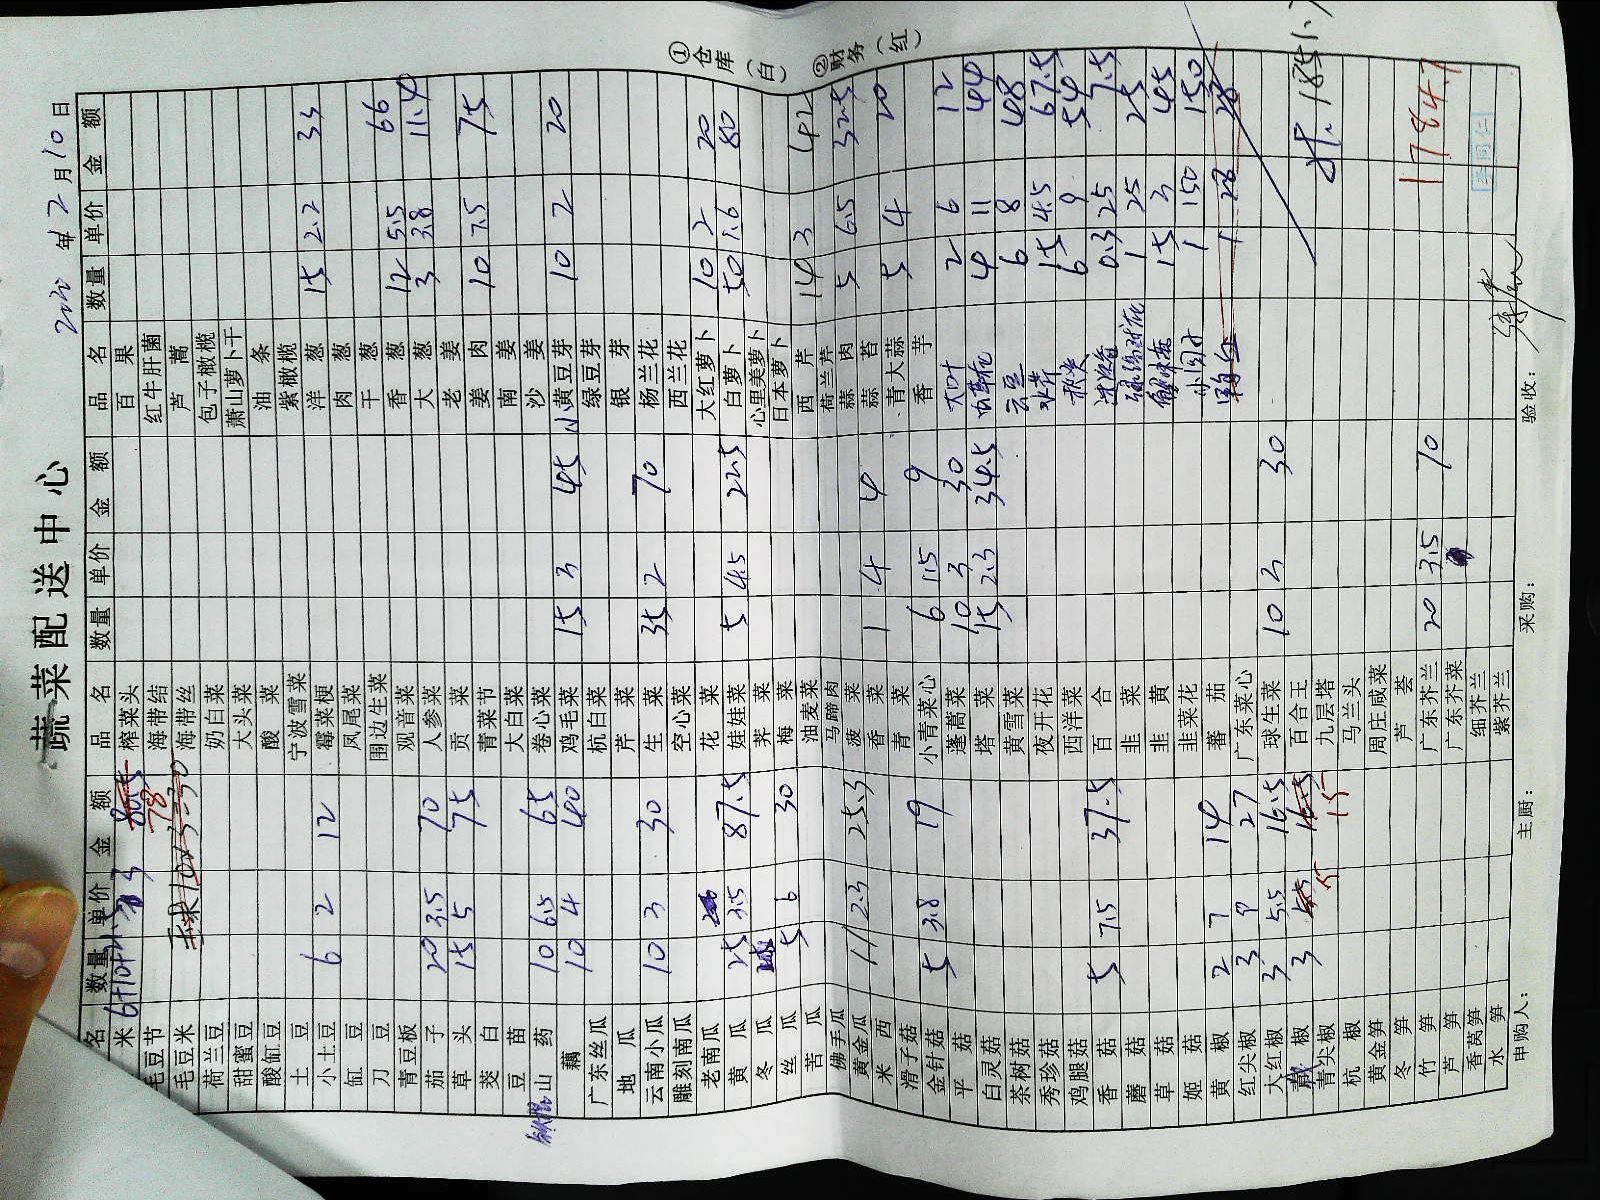 蔬菜配送中心
2020年2月10日
名 数量 单价 金额 品名 数量 单价 金额 品名 数量 单价 金额
米 3 78 榨菜头 百果
毛豆节 海带结 红牛肝菌
毛豆米 海带丝 芦蒿
荷兰豆 奶白菜 包子橄榄
甜蜜豆 大头菜 萧山萝卜干
酸缸豆 酸菜 油条
土豆 宁波雪菜 紫橄榄
小土豆 6 2 12 霉菜梗 洋葱 15 2.2 33
缸豆 凤尾菜 肉葱
刀豆 围边生菜 干葱 66
青豆板 观音菜 香葱 12 5.5 11.4
茄子 20 3.5 70 人参菜 大葱 3 3.8
草头 15 5 75 贡菜 老姜
茭白 青菜节 姜肉 10 7.5 75
豆苗 大白菜 南姜
山药 10 6.5 65 卷心菜 沙姜
藕 10 4 40 鸡毛菜 15 3 45 小黄豆芽 10 2 20
广东丝瓜 杭白菜 绿豆芽
地瓜 芹菜 银芽
云南小瓜 10 3 30 生菜 35 2 70 杨兰花
雕刻南瓜 空心菜 西兰花
老南瓜 花菜 大红萝卜 10 2 20
黄瓜 25 3.5 87.5 娃娃菜 5 4.5 22.5 白萝卜 50 1.6 80
冬瓜 荠菜 心里美萝卜
丝瓜 5 6 30 梅菜 日本萝卜
苦瓜 油麦菜 西芹 14 3 42
佛手瓜 马蹄肉 荷兰芹
黄金瓜 11 2.3 25.3 菠菜 蒜肉 5 6.5 32.5
米西 香菜 1 4 4 蒜苔
滑子菇 青菜 青大蒜 5 4 20
金针菇 5 3.8 19 小青菜心 6 1.5 9 香芋
平菇 蓬蒿菜 10 3 30 大叶 2 6 12
白灵菇 塔菜 15 2.3 34.5 4 11 44
茶树菇 黄雪菜 云豆 6 8 48
秀珍菇 夜开花 水芹 15 4.5 67.5
鸡腿菇 西洋菜 秋葵 6 9 54
香菇 5 7.5 37.5 百合 0.3 25 7.5
蘑菇 韭菜 1 25 25
草菇 韭黄 15 3 45
姬菇 韭菜花 1 150 150
黄椒 2 7 14 蕃茄 1 28 28
红尖椒 3 9 27 广东菜心
大红椒 3 5.5 16.5 球生菜 10 3 30
椒 3 5 15 百合王
青尖椒 九层塔
杭椒 马兰头
黄金笋 周庄咸菜
冬笋 芦荟
竹笋 广东芥兰 20 3.5 70
芦笋 广东芥菜
香莴笋 细芥兰
水笋 紫芥兰
申购人： 主厨： 采购： 验收：
①仓库（白） ②财务（红）
1851.7
1784.7